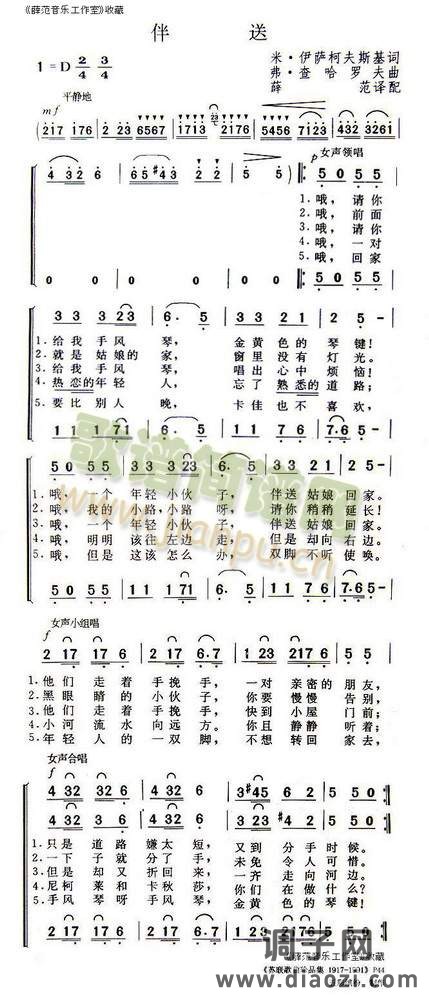 《薛范音乐工作室》收藏
伴 送
1=D 2/4 3/4
米·伊萨柯夫斯基词
弗·查哈罗夫曲
薛 范译配
平静地
mf
217 176 2 23 6567 1713 2176 5456 7123 432 3261
女声领唱
p
1.哦，请你
2.哦，前面
3.哦，请你
4.哦，一对
5.哦，回家
3 3 3 23 6· 5 3 3 21 2 5 -
1.给我手风琴，金黄色的琴键！
2.就是姑娘的家，窗里没有灯光。
3.给我手风琴，唱出心中烦恼！
4.热恋的年轻人，忘了熟悉的道路；
5.要比别人晚，卡佳也不喜欢，
1 1 1 71 6· 5 1 1 1 2 7·6 5
50 55 3 3 3 23 6· 5 3 3 21 2 5 -
1.哦，一个年轻小伙子，伴送姑娘回家。
2.哦，我的小路，小路呀，请你稍稍延长！
3.哦，一个年轻小伙子，伴送姑娘回家。
4.哦，明明该往左边走，但是却向右边。
5.哦，但是这该怎么办，双脚不听使唤。
50 55 1 1 1 71 6· 5 1 1 1 2 7·6 5
女声小组唱
f
2 17 17 6 2 17 6· 7 1 23 2176 6
1.他们走着手挽手，一对亲密的朋友，
2.黑眼睛的小伙子，你要慢慢告别，
3.他们走着手挽手，快到小屋门前；
4.小河流水向远方。你且静静听着：
5.年轻人的一双脚，不想转回家去，
女声合唱
f
4 32 32 6 4 32 6 3#45 6 2 5 0
4 32 32 6 4 32 6 3 23 #4 2 5 0
1.只是道路嫌太短，又到分手时候。
2.一下子就分了手，未免令人可惜。
3.但是却又折回来，一齐走向河边。
4.尼柯莱和卡秋莎，你们在做什么？
5.手风琴呀手风琴，金黄色的琴键！
《薛范音乐工作室》收藏
《苏联歌曲珍品集 1917-1991》P44
歌谱简谱网
www.jianpu.cn
调子网
www.diaozi.com